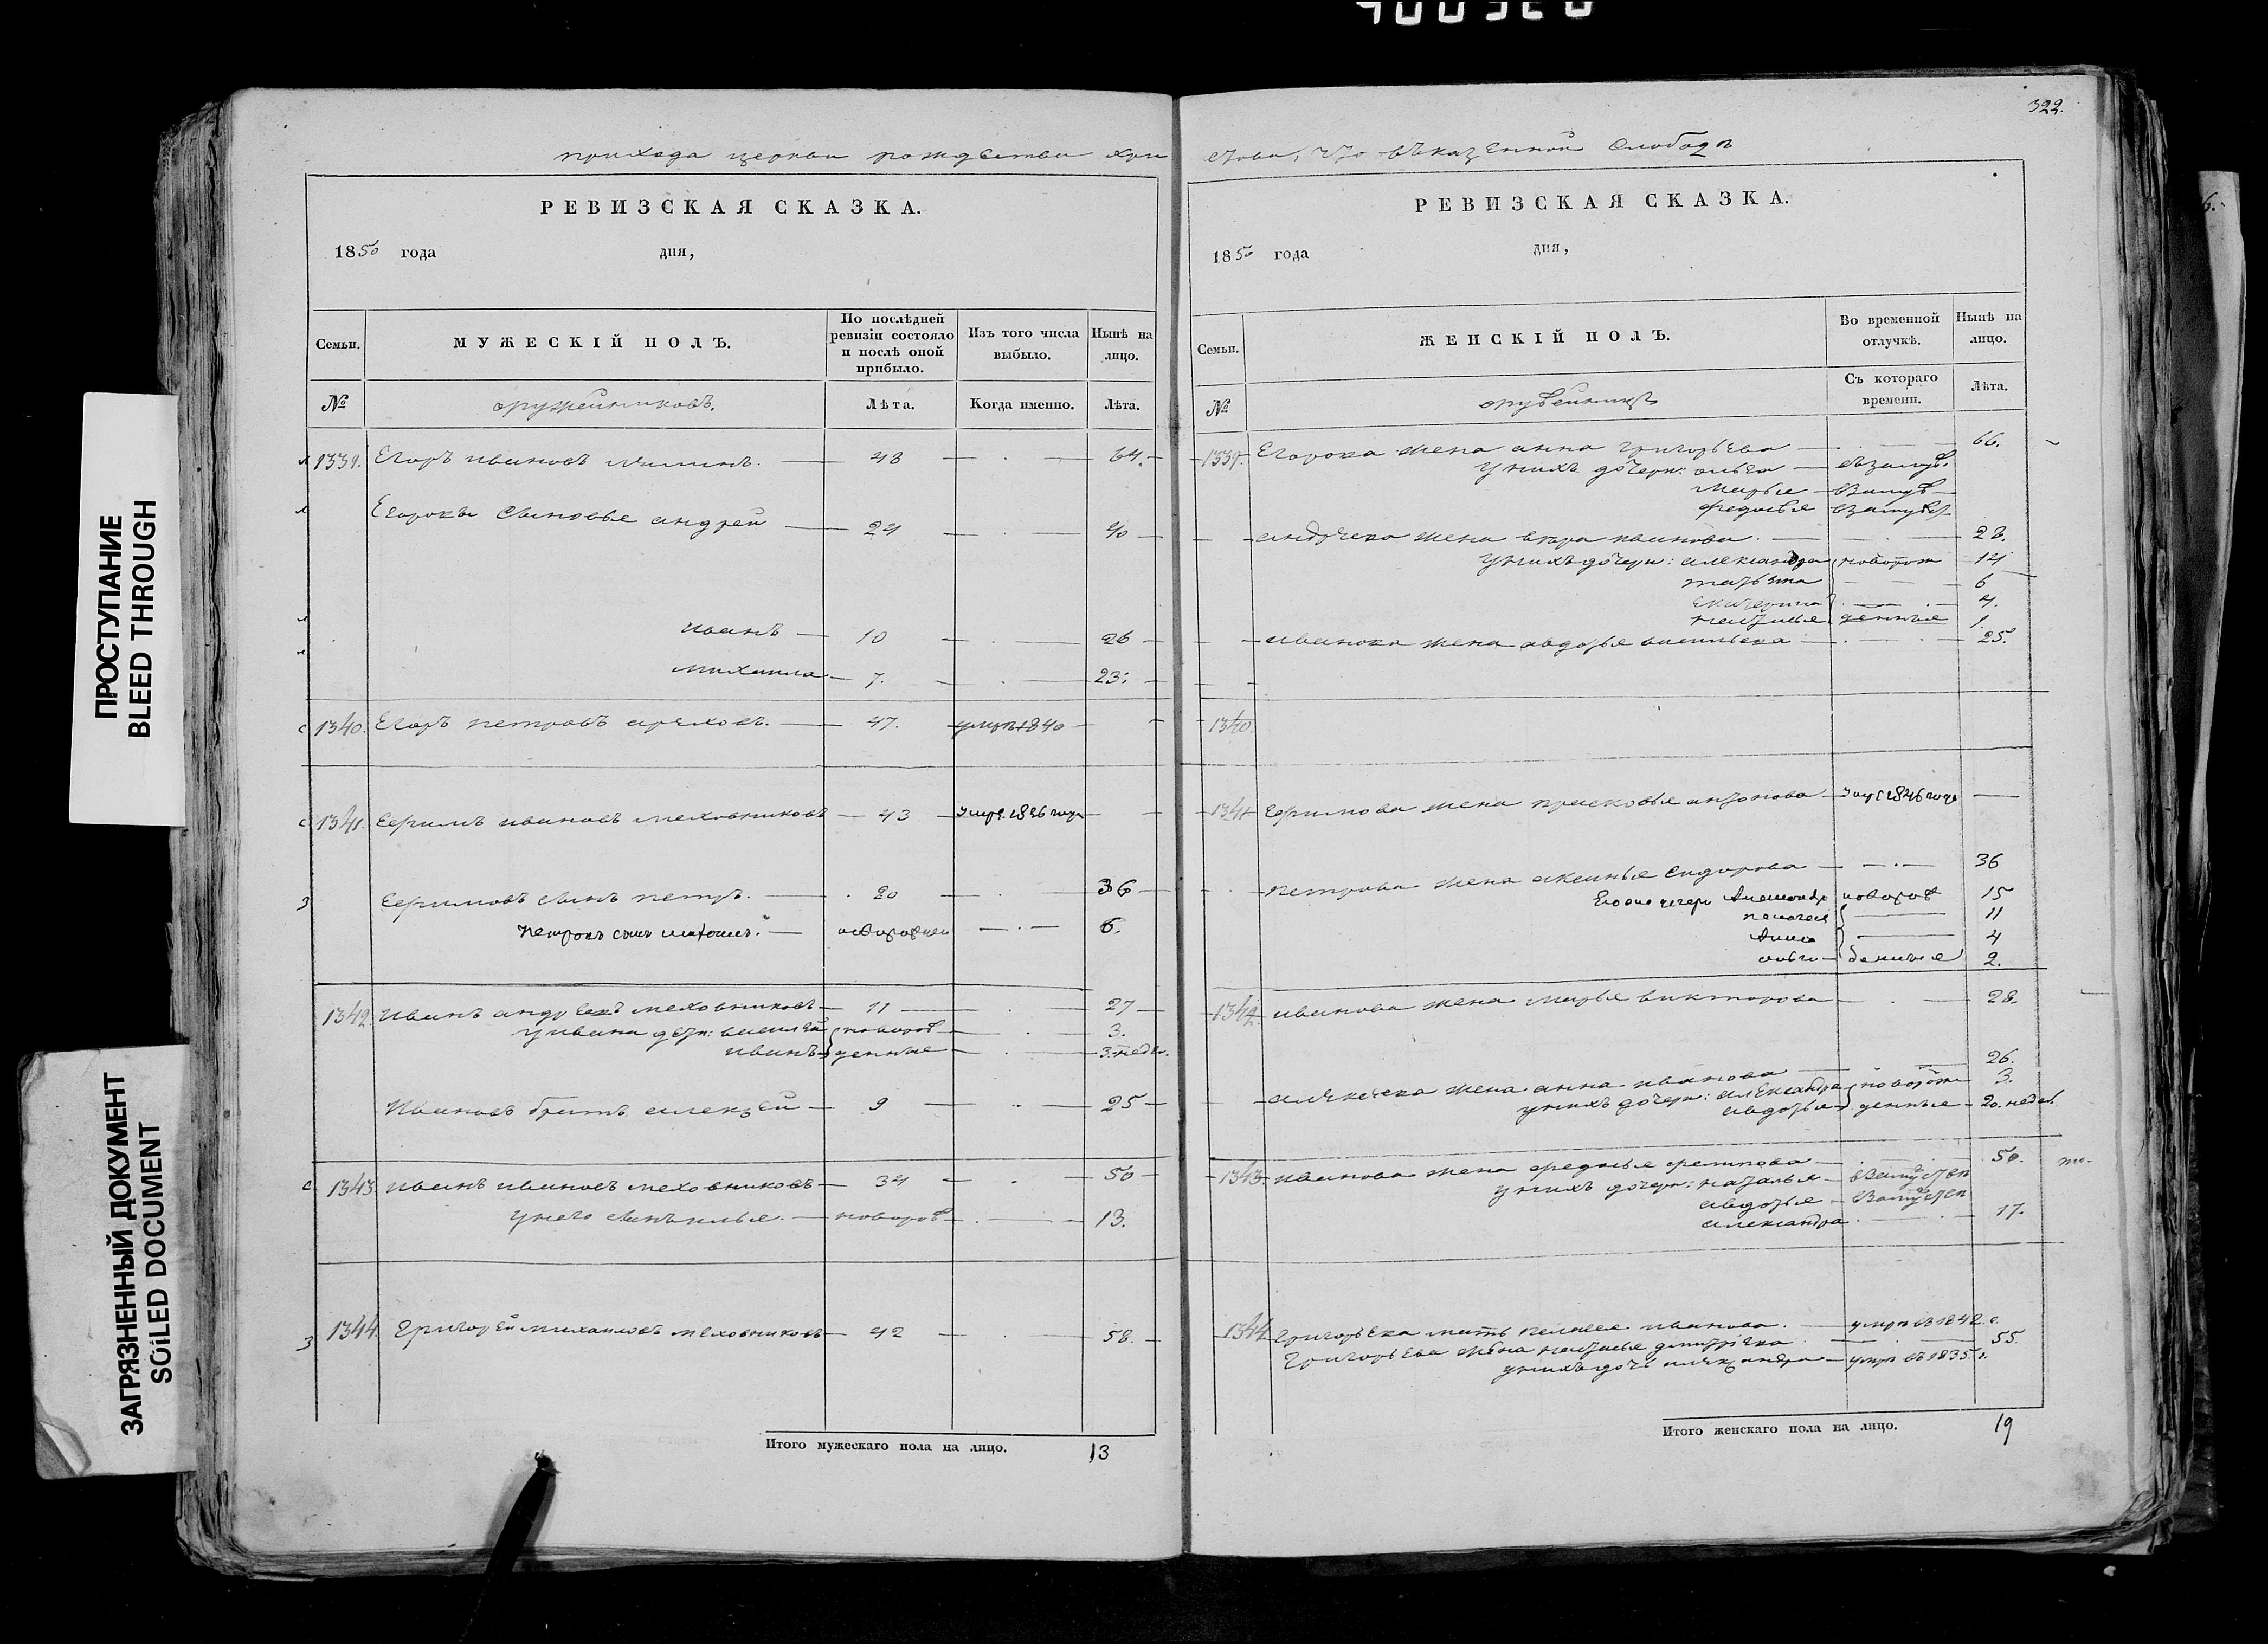 322.
прихода церкви рождества хри
стова, что въ казенной слободѣ
РЕВИЗСКАЯ СКАЗКА.
1850 года дня,
Семьи.
МУЖЕСКІЙ ПОЛЪ.
По послѣдней
ревизіи состояло
и послѣ оной
прибыло.
Изъ того числа
выбыло.
Нынѣ на
лицо.
№
оружейниковъ.
Лѣта.
Когда именно.
Лѣта.
1339. Егоръ ивановъ 48 64.
Егоровы сыновья андрей 24 40
иванъ 10 26
михаила 7. 23.
1340. Егоръ петровъ ореховъ. 47. умре 1840
1341. Ефимъ ивановъ меховниковъ 43 умре 1836 года
Ефимовъ сынъ петръ. 20 36
петровъ сынъ 6.
1342. Иванъ андреевъ меховниковъ 11 27
у ивана дети: василей новорож 3.
иванъ денные 3. недел.
Ивановъ братъ алексей 9 25
1343. иванъ ивановъ меховниковъ 34 50
у него сынъ илья. новорож 13.
1344. Григорей михаиловъ меховниковъ 42 58.
Итого мужескаго пола на лицо. 13
РЕВИЗСКАЯ СКАЗКА.
1850 года дня,
Семьи.
ЖЕНСКІЙ ПОЛЪ.
Во временной
отлучкѣ.
Нынѣ на
лицо.
№
Съ котораго
времени.
Лѣта.
1339. Егорова жена анна григорьева 66.
у нихъ дочери: ольга взамуж.
марья взамуж
федосья взамуж
андреева жена вера иванова. 28.
у нихъ дочери: александра новорож 14
татьяна 6
екатерина 4.
наталья денные 1.
иванова жена авдотья васильева 25.
1340.
1341. Ефимова жена прасковья антонова умре 1846 года
петрова жена аксинья сидорова 36
дочери новорож 15
пелагея 11
Анна 4
ольга денные 2.
1342. иванова жена марья викторова 28.
алексеева жена анна иванова 26.
у нихъ дочери: александра новорож 3.
авдотья денные 20. недел.
1343. иванова жена федосья филипова 50.
у нихъ дочери: наталья
авдотья
александра 17.
1344. Григорьева мать пелагея иванова. умре въ 1842. г.
Григорьева жена наталья дмитриева 55.
у нихъ дочь александра умре въ 1835. г.
Итого женскаго пола на лицо. 19
ПРОСТУПАНИЕ
BLEED THROUGH
ЗАГРЯЗНЕННЫЙ ДОКУМЕНТ
SOILED DOCUMENT